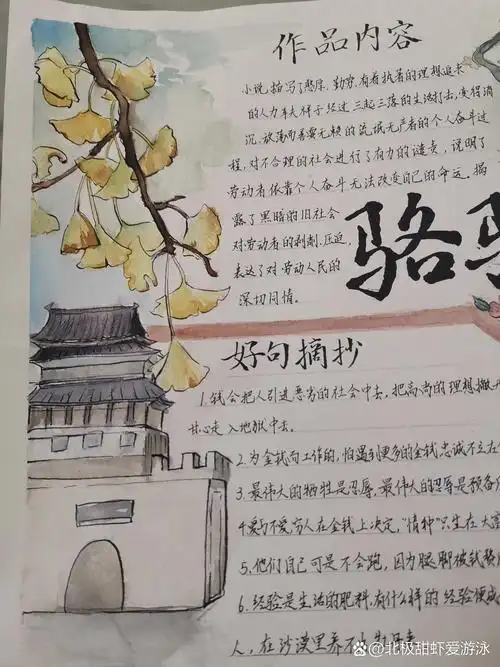 作品内容
小说描写了憨厚、勤劳、有着执著的理想追求
的人力车夫祥子经过三起三落的生活打击，变得消
沉、放荡而善耍无赖的流氓无产者的个人奋斗过
程，对不合理的社会进行了有力的谴责，说明了
劳动者依靠个人奋斗无法改变自己的命运。揭
露了黑暗的旧社会
对劳动者的剥削、压迫，
表达了对劳动人民的
深切同情。
骆
好句摘抄
1.钱会把人引进恶劣的社会中去，把高尚的理想撇开
甘心走入地狱中去。
2.为金钱而工作的，怕遇到更多的金钱，忠诚不立在
3.最伟大的牺牲是忍辱，最伟大的忍辱是预备
4.爱与不爱，穷人在金钱上决定，“情种”只生在大富
5.他们自己可是不会跑，因为腿脚被钱
6.经验是生活的肥料，有什么样的经验便
人，在沙漠里养不
头条 @北极甜虾爱游泳